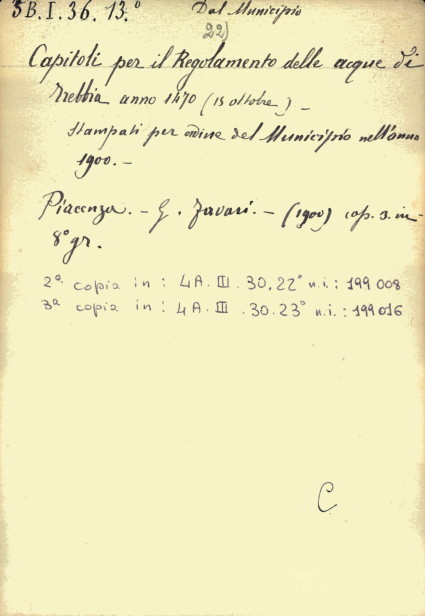 5B. I. 36. 13.° Dal Municipio
22)
Capitoli per il Regolamento delle acque di
Trebbia anno 1470 (15 ottobre) –
Stampati per ordine del Municipio nell'anno
1900. –
Piacenza. – G. Tavari. – (1900) cop. 3. in-
8° gr.
2ª copia in : 4A. III. 30.22° n.i.: 199 008
3ª copia in : 4A. III. 30.23° n.i.: 199016
C